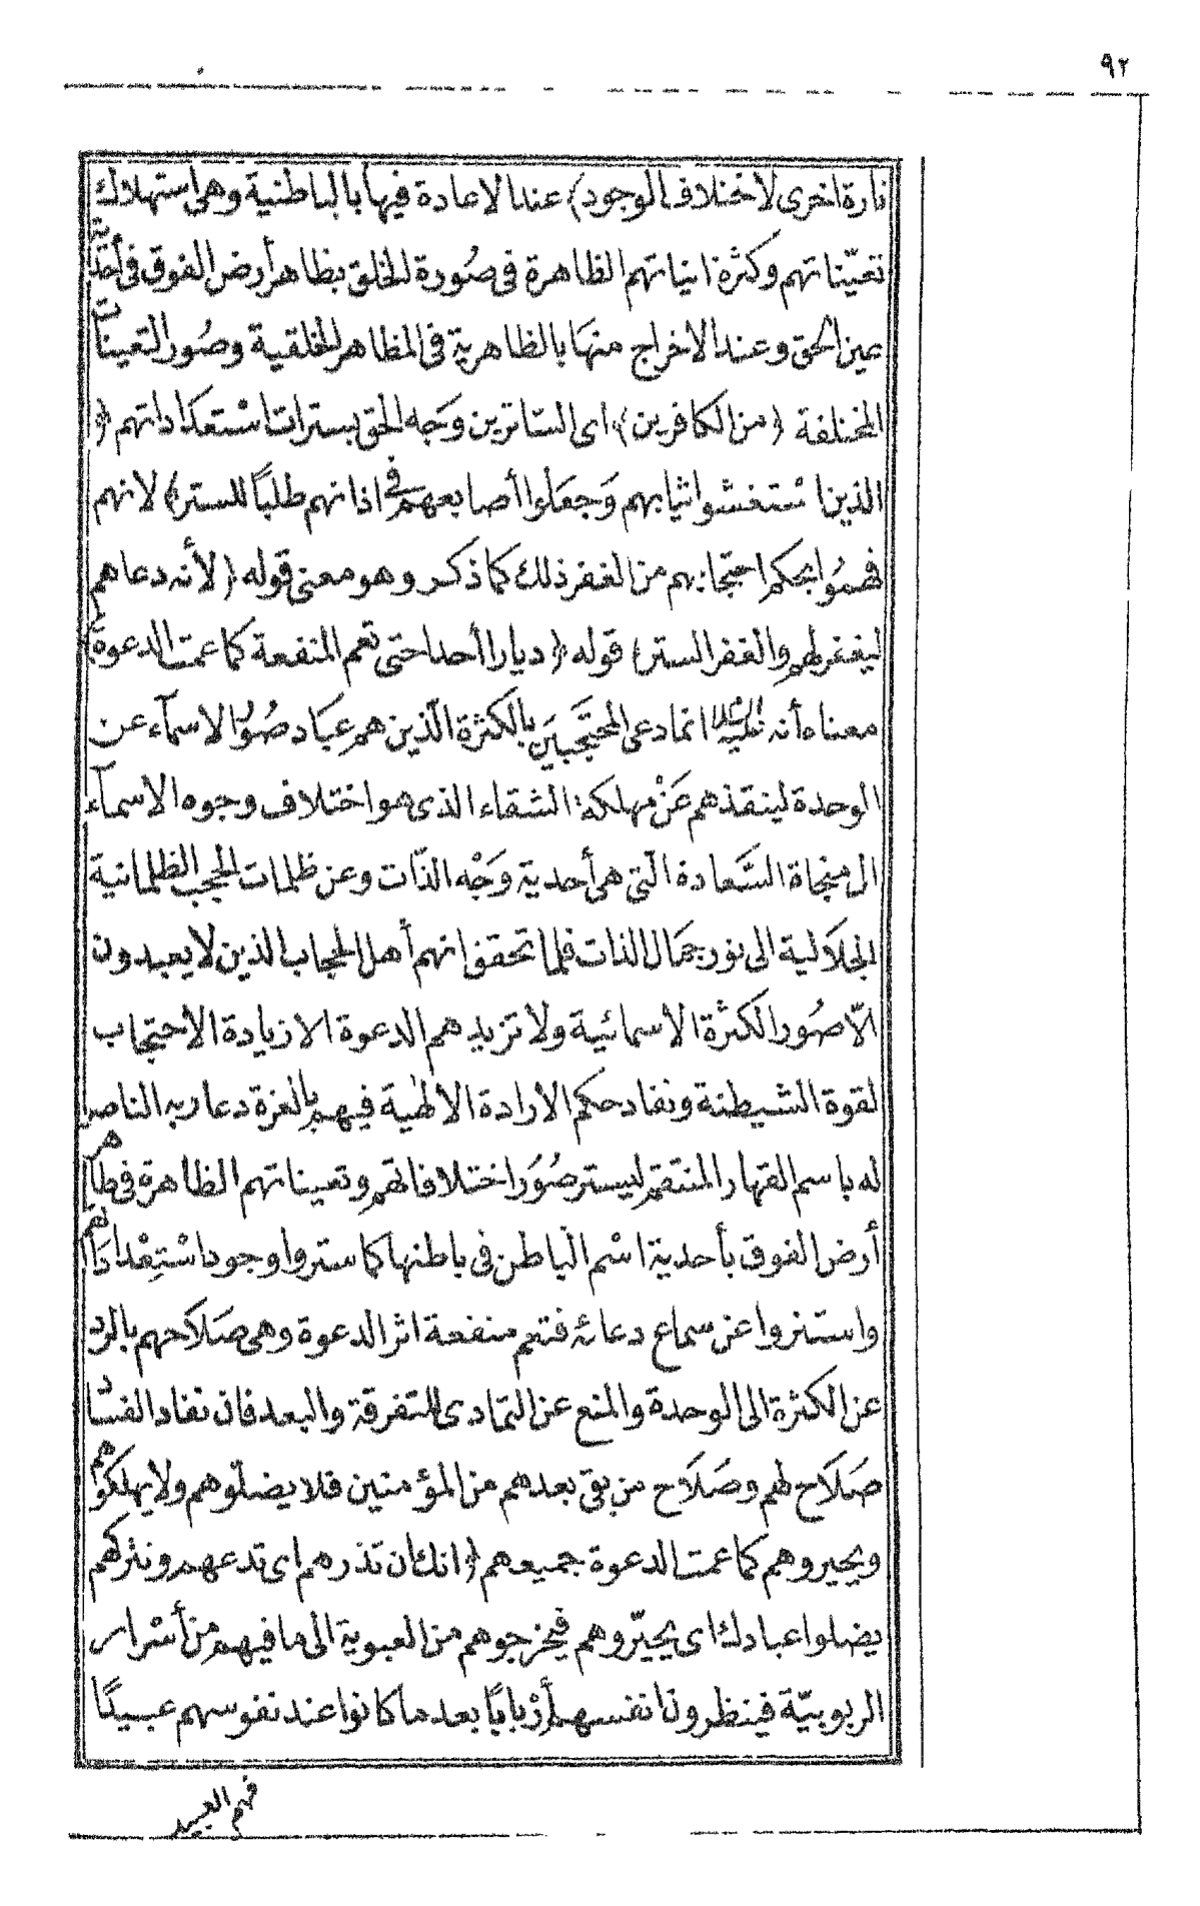 ٩٢
تارة اخرى لاختلاف الوجود) عند الاعادة فيها بالباطنية وهى استهلاك
تعيّناتهم وكثرة انياتهم الظاهرة فى صُورة الخلق بظاهر أرض الفوق فى أحدية
عين الحق وعند الاخراج منهَا بالظاهرية فى المظاهر الخلقية وصُور التعينات
المختلفة (من الكافرين) اى الساترين وَجه الحق بسترات اسْتعدَاداتهم (
الذين اسْتغشوا ثيابهم وَجعَلوا أصابعهم فى اذانهم طلبًا للستر) لانهم
فهمُوا بحكم احتجابهم من الغفر ذلك كما ذكر وهو معنى قوله (لأنه دعاهم
ليغفر لهم والغفر الستر) قوله (ديارا أحدا حتى تعم المنفعة كما عمت الدعوة)
معناه أنه عليه السلام انما دعى المحتَجبين بالكثرة الّذين هم عبَاد صُوَر الاسمآء عن
الوحدة لينقذهم عَنْ مهلكة الشقاء الذى هو اختلاف وجوه الاسمآء
الى منجاة السَّعادة الّتى هى أحدية وَجْه الذّات وعن ظلمات الحجب الظلمانية
الجلَالية الى نور جمَال الذات فلما تحقق انهم أهل الحجاب الذين لا يعبدون
الّا صُور الكثرة الاسمائية ولا تزيدهم الدعوة الا زيادة الاحتجاب
لقوة الشيطنة ونفاد حكم الارادة الالٰهية فيهم بالعزة دعا ربه الناصر
له باسم القهار المنتقم ليستر صُوَر اختلافاتهم وتعيناتهم الظاهرة فى ظاهر
أرض الفوق بأحدية اسْم الباطن فى باطنها كما ستروا وجود اسْتِعْدادَاتهم
واستتروا عن سماع دعائه فتعم منفعة اثر الدعوة وهى صَلَاحهم بالرد
عن الكثرة الى الوحدة والمنع عن التمادى للتفرقة والبعد فان نفاد الفساد
صَلَاح لهم وصَلَاح من بقى بعدهم من المؤمنين فلا يضلّوهم ولا يهلكوهم
ويحيروهم كما عمت الدعوة جميعهم (انك ان تذرهم اى تدعهم ونتركهم
يضلوا عبادك اى يحيّروهم فيخرجوهم من العبوية الى ما فيهم من أسْرار
الربوبيّة فينظرون انفسهم أرْبابًا بعد ما كانوا عند نفوسهم عبيدًا
فهم العبيد